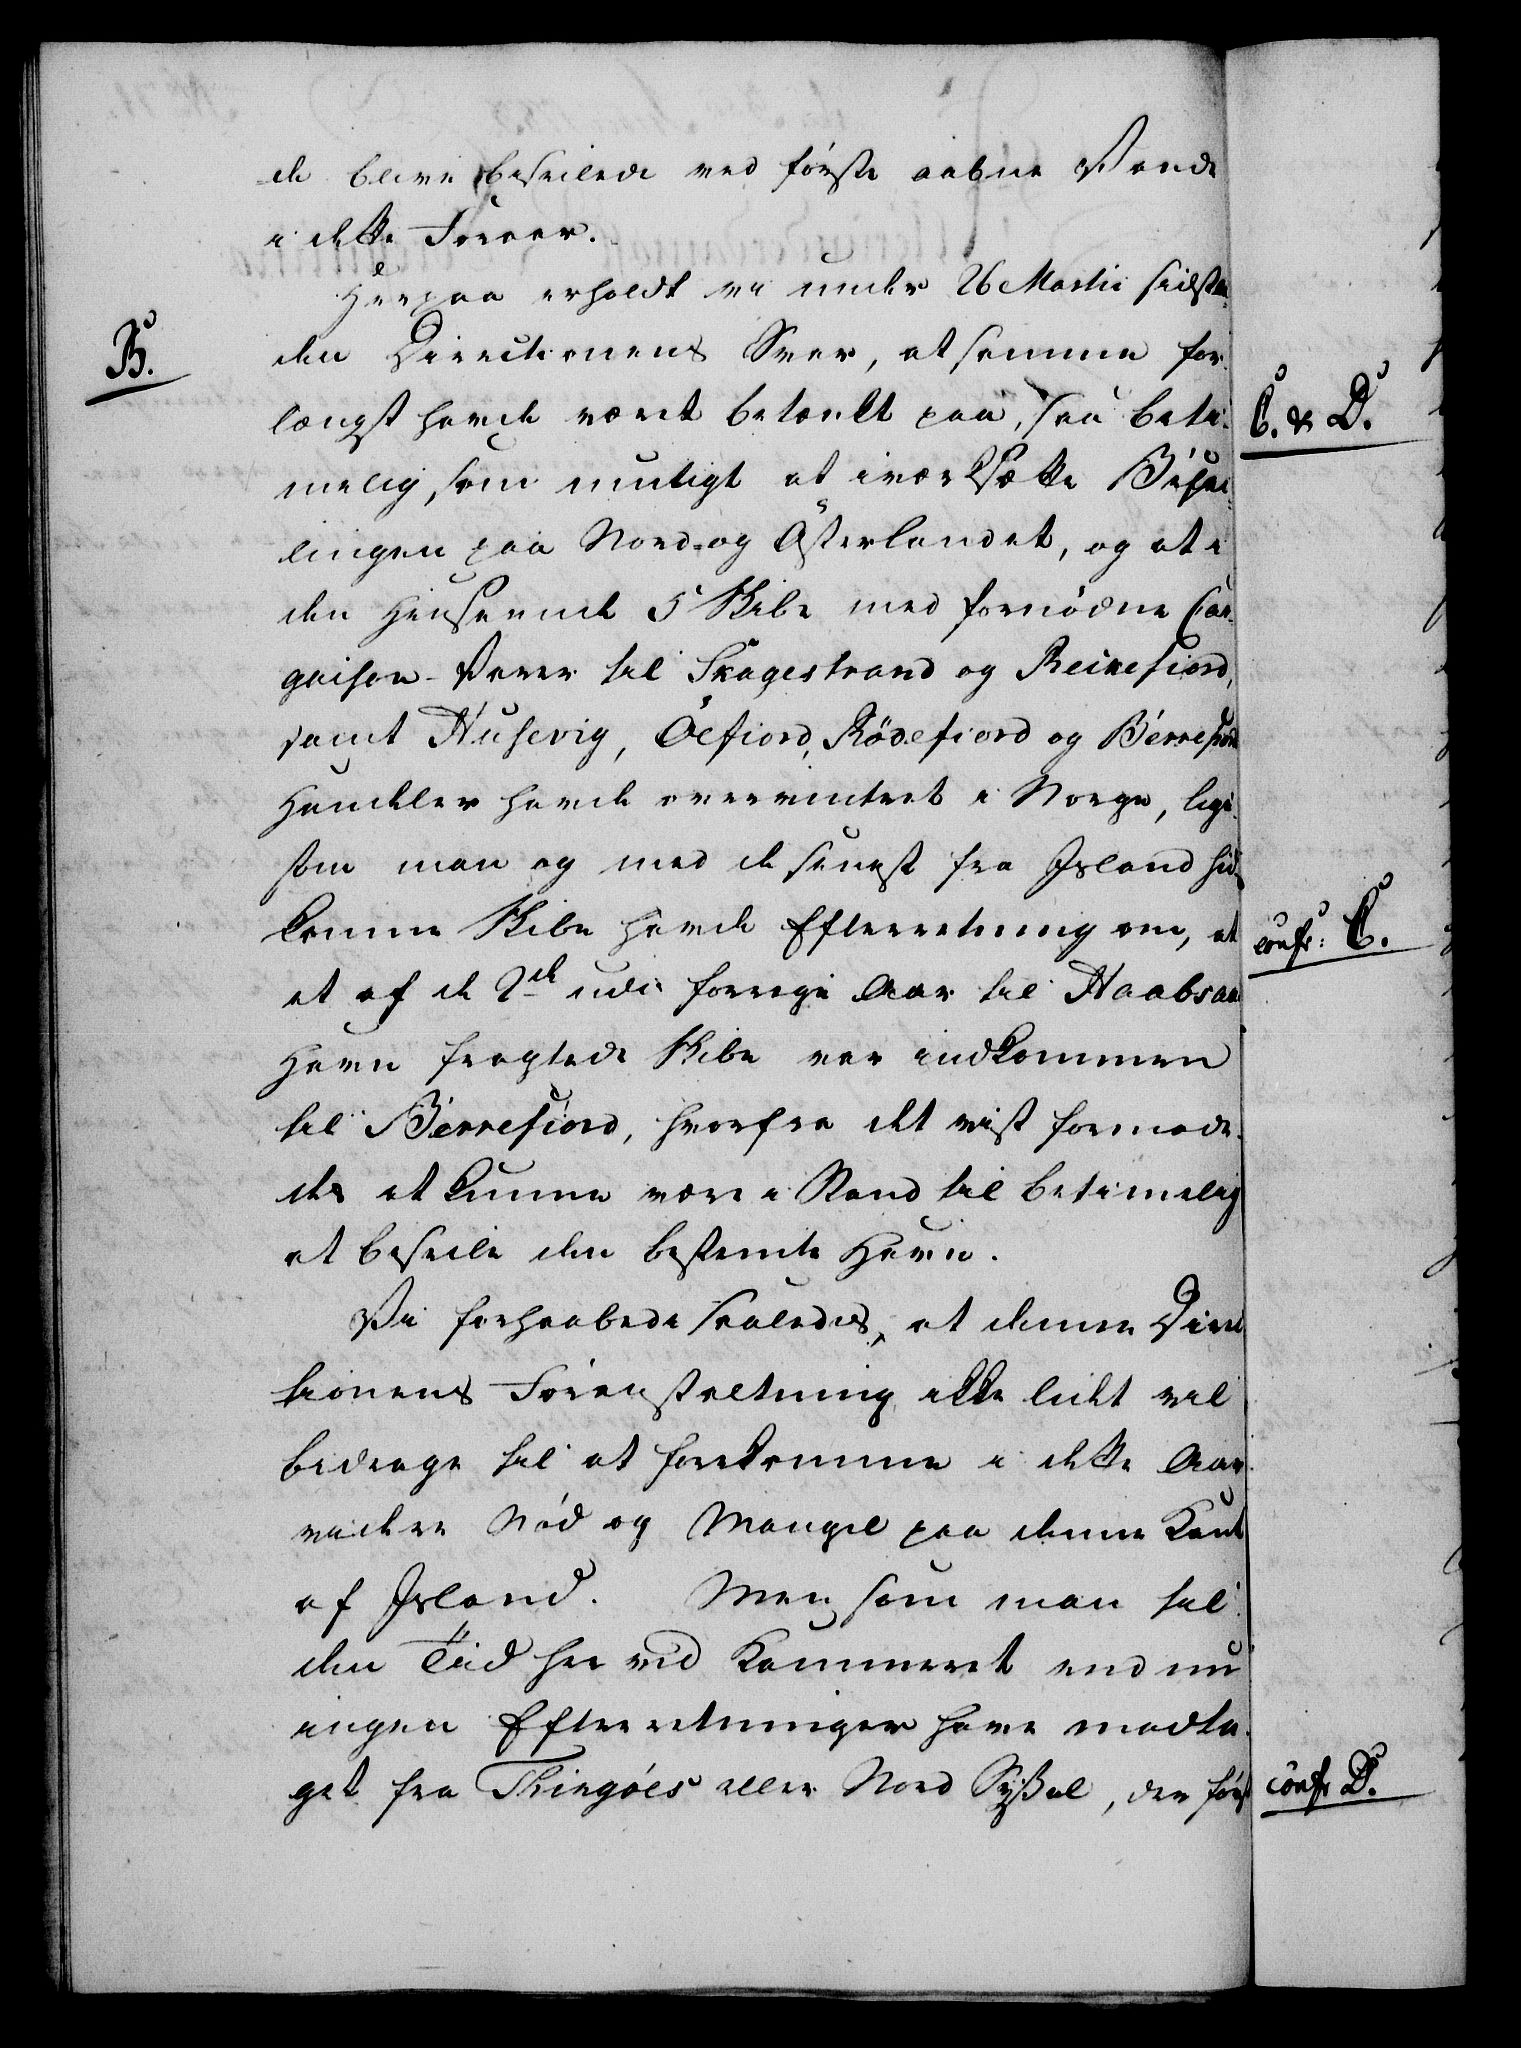 de blive beseilede ved første aabne Vande
i dette Foraar.
Herpaa erholdt vi under 26 Martii sidst
B.
den Directionens Svar, at samme for
længst havde været betænkt paa, saa beti-
melig, som muligt at iværksætte Besei-
lingen paa Nord- og Österlandet, og at i
den Henseende 5 Skibe med fornødne Car-
gaison-Varer til Skagestrand og Reikefiord,
samt Husevig, Öefiord, Rödefiord og Berrefiord
Handler havde overvintret i Norge, lige-
som man og med de senest fra Island hid-
komne Skibe havde Efterretning om, at
et af de 2de udi forrige Aar til Haabsens
Havn fragtede Skibe var indkommen
til Berrefiord, hvorfra det vist formode-
des at kunne være i Stand til betimelig
at beseile den bestemte Havn.
Vi forhaabede saaledes, at denne Direc
tionens Foranstaltning ikke lidet vil
bidrage til at forekomme i dette Aar
videre Nød og Mangel paa denne Kant
af Island. Men som man til
den Tiid her ved Kammeret end nu
ingen Efterretninger have modta-
get fra Thingöes eller Nord Syssel, der først
C. & D.
confr: C.
confr D.